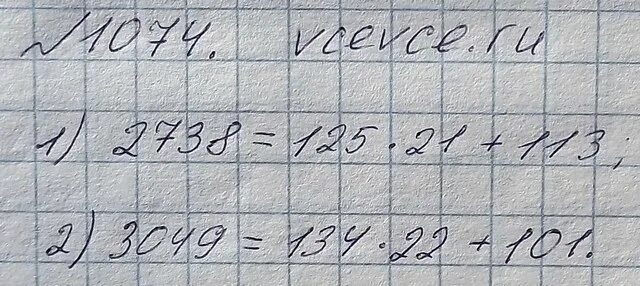 №1074. vcevce.ru
1) 2738 = 125 · 21 + 113;
2) 3049 = 134 · 22 + 101.